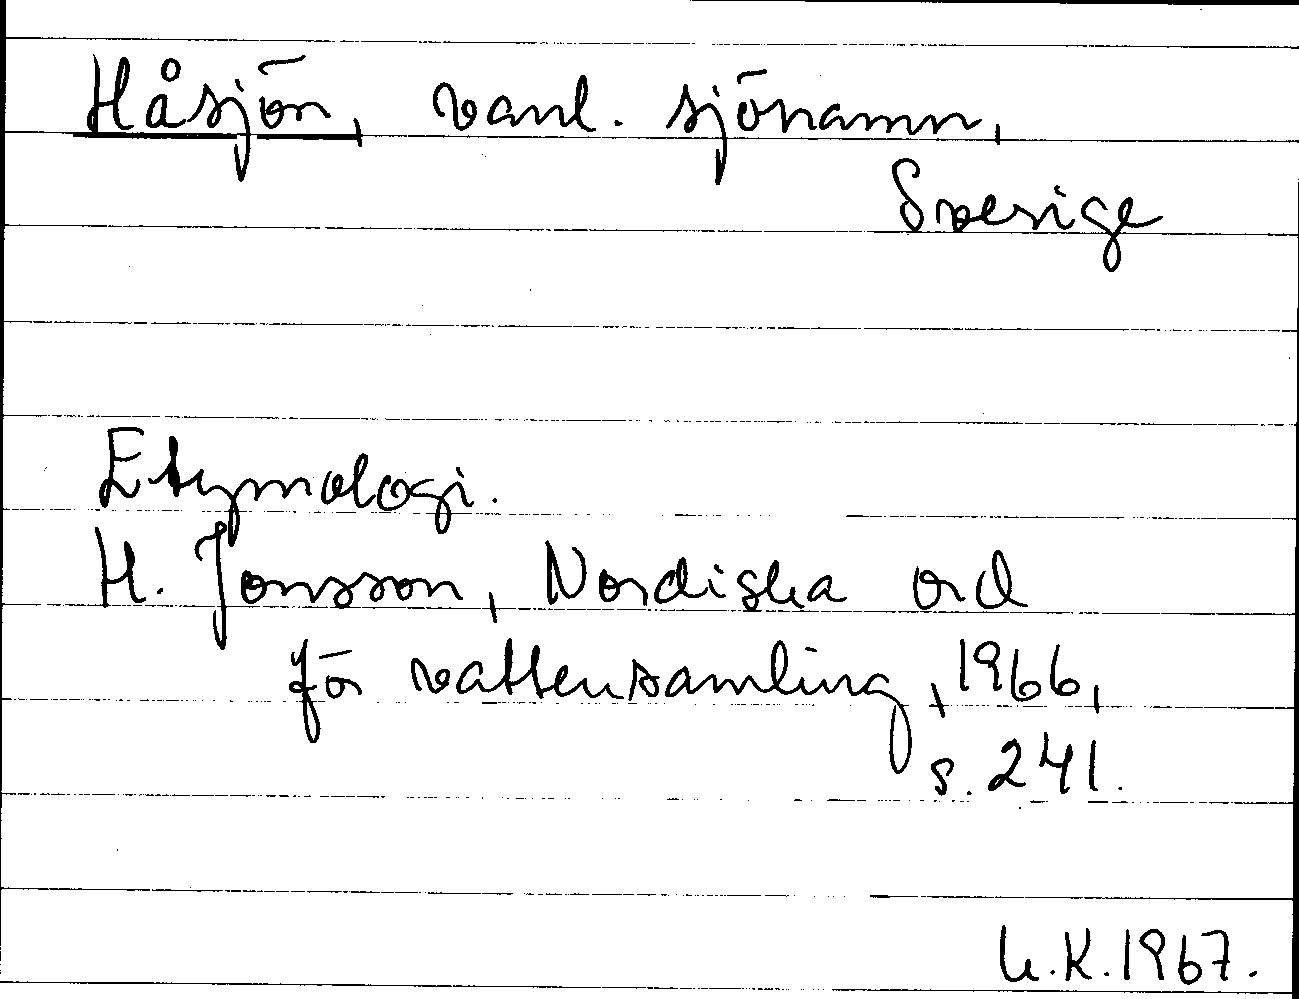 Håsjön, vanl. sjönamn,
Sverige
Etymologi.
H. Jonsson, Nordiska ord
för vattensamling, 1966,
s. 241.
U.K. 1967.